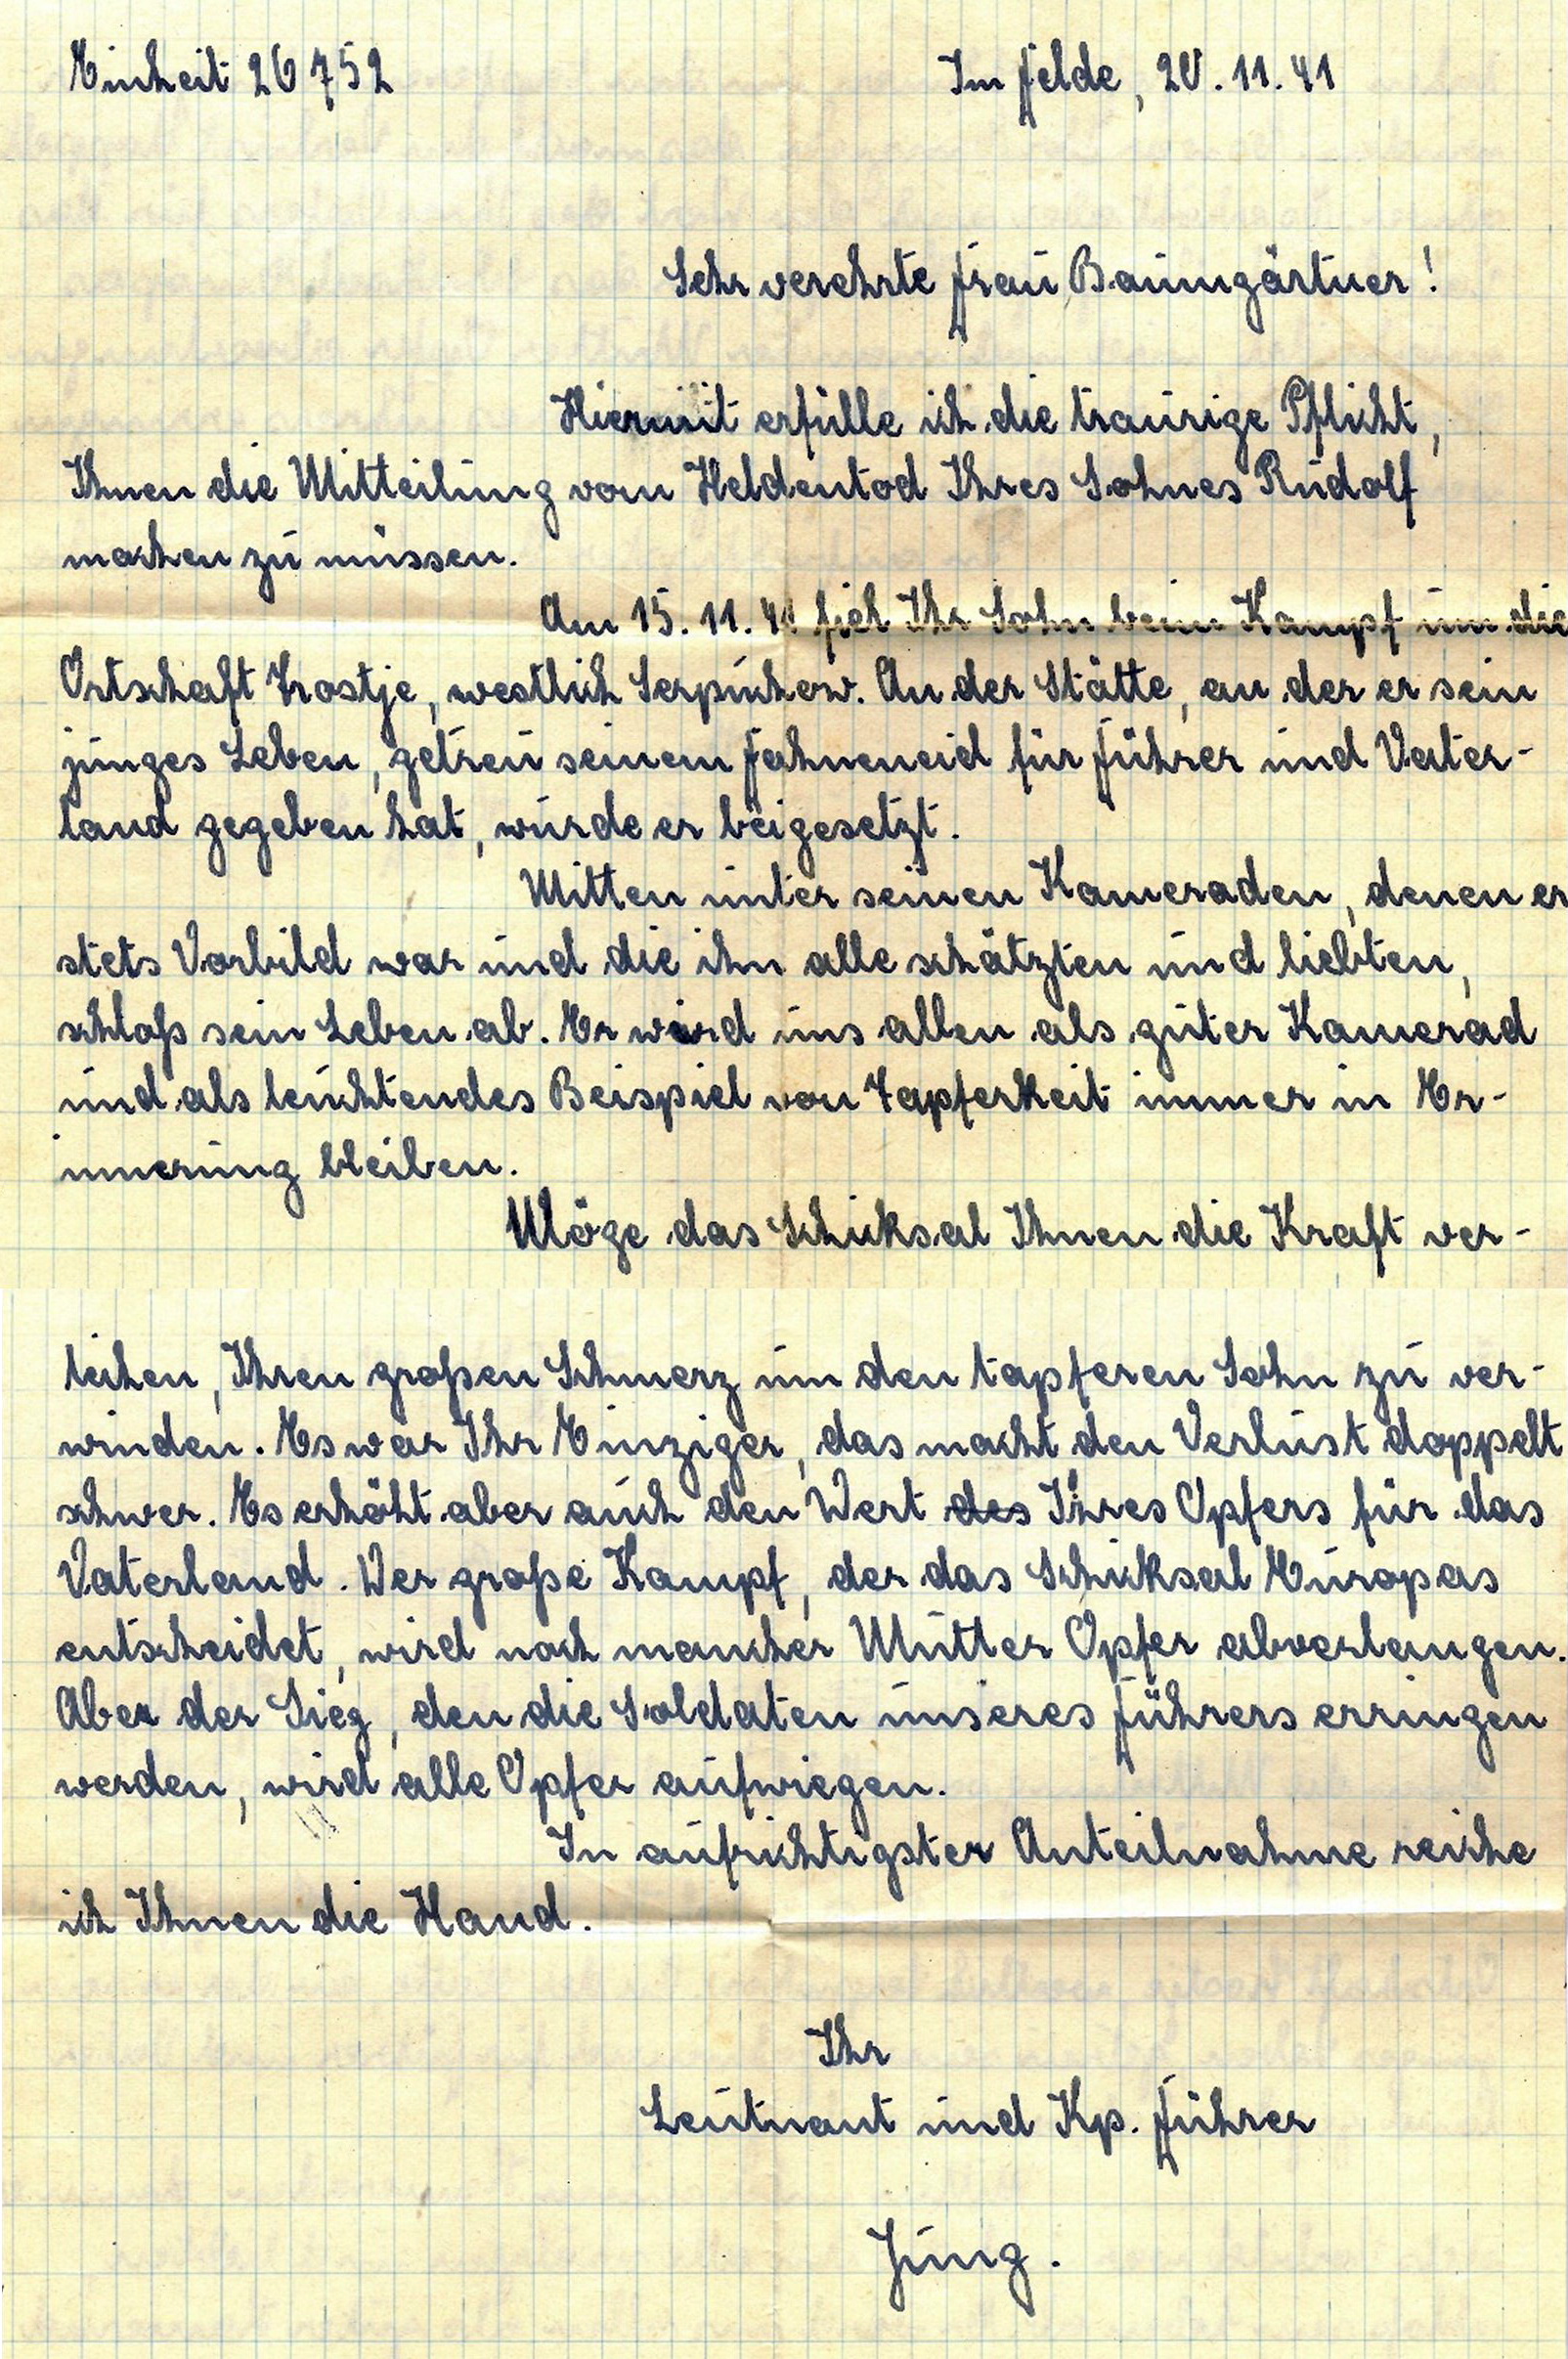 Einheit 26752
Im Felde, 20.11.41
Sehr verehrte Frau Baumgärtner!
Hiermit erfülle ich die traurige Pflicht,
Ihnen die Mitteilung vom Heldentod Ihres Sohnes Rudolf
machen zu müssen.
Am 15.11.41 fiel Ihr Sohn beim Kampf um die
Ortschaft Trostje, westlich Serpuchow. An der Stätte, an der er sein
junges Leben, getreu seinem Fahneneid für Führer und Vater-
land gegeben hat, wurde er beigesetzt.
Mitten unter seinen Kameraden, denen er
stets Vorbild war und die ihn alle schätzten und liebten,
schloß sein Leben ab. Er wird uns allen als guter Kamerad
und als leuchtendes Beispiel von Tapferkeit immer in Er-
innerung bleiben.
Möge das Schicksal Ihnen die Kraft ver-
leihen, Ihren großen Schmerz um den tapferen Sohn zu ver-
winden. Es war Ihr Einziger, das macht den Verlust doppelt
schwer. Es erhöht aber auch den Wert des Ihres Opfers für das
Vaterland. Der große Kampf, der das Schicksal Europas
entscheidet, wird noch mancher Mutter Opfer abverlangen.
Aber der Sieg, den die Soldaten unseres Führers erringen
werden, wird alle Opfer aufwiegen.
In aufrichtigster Anteilnahme reiche
ich Ihnen die Hand.
Ihr
Leutnant und Kp. Führer
Jung.